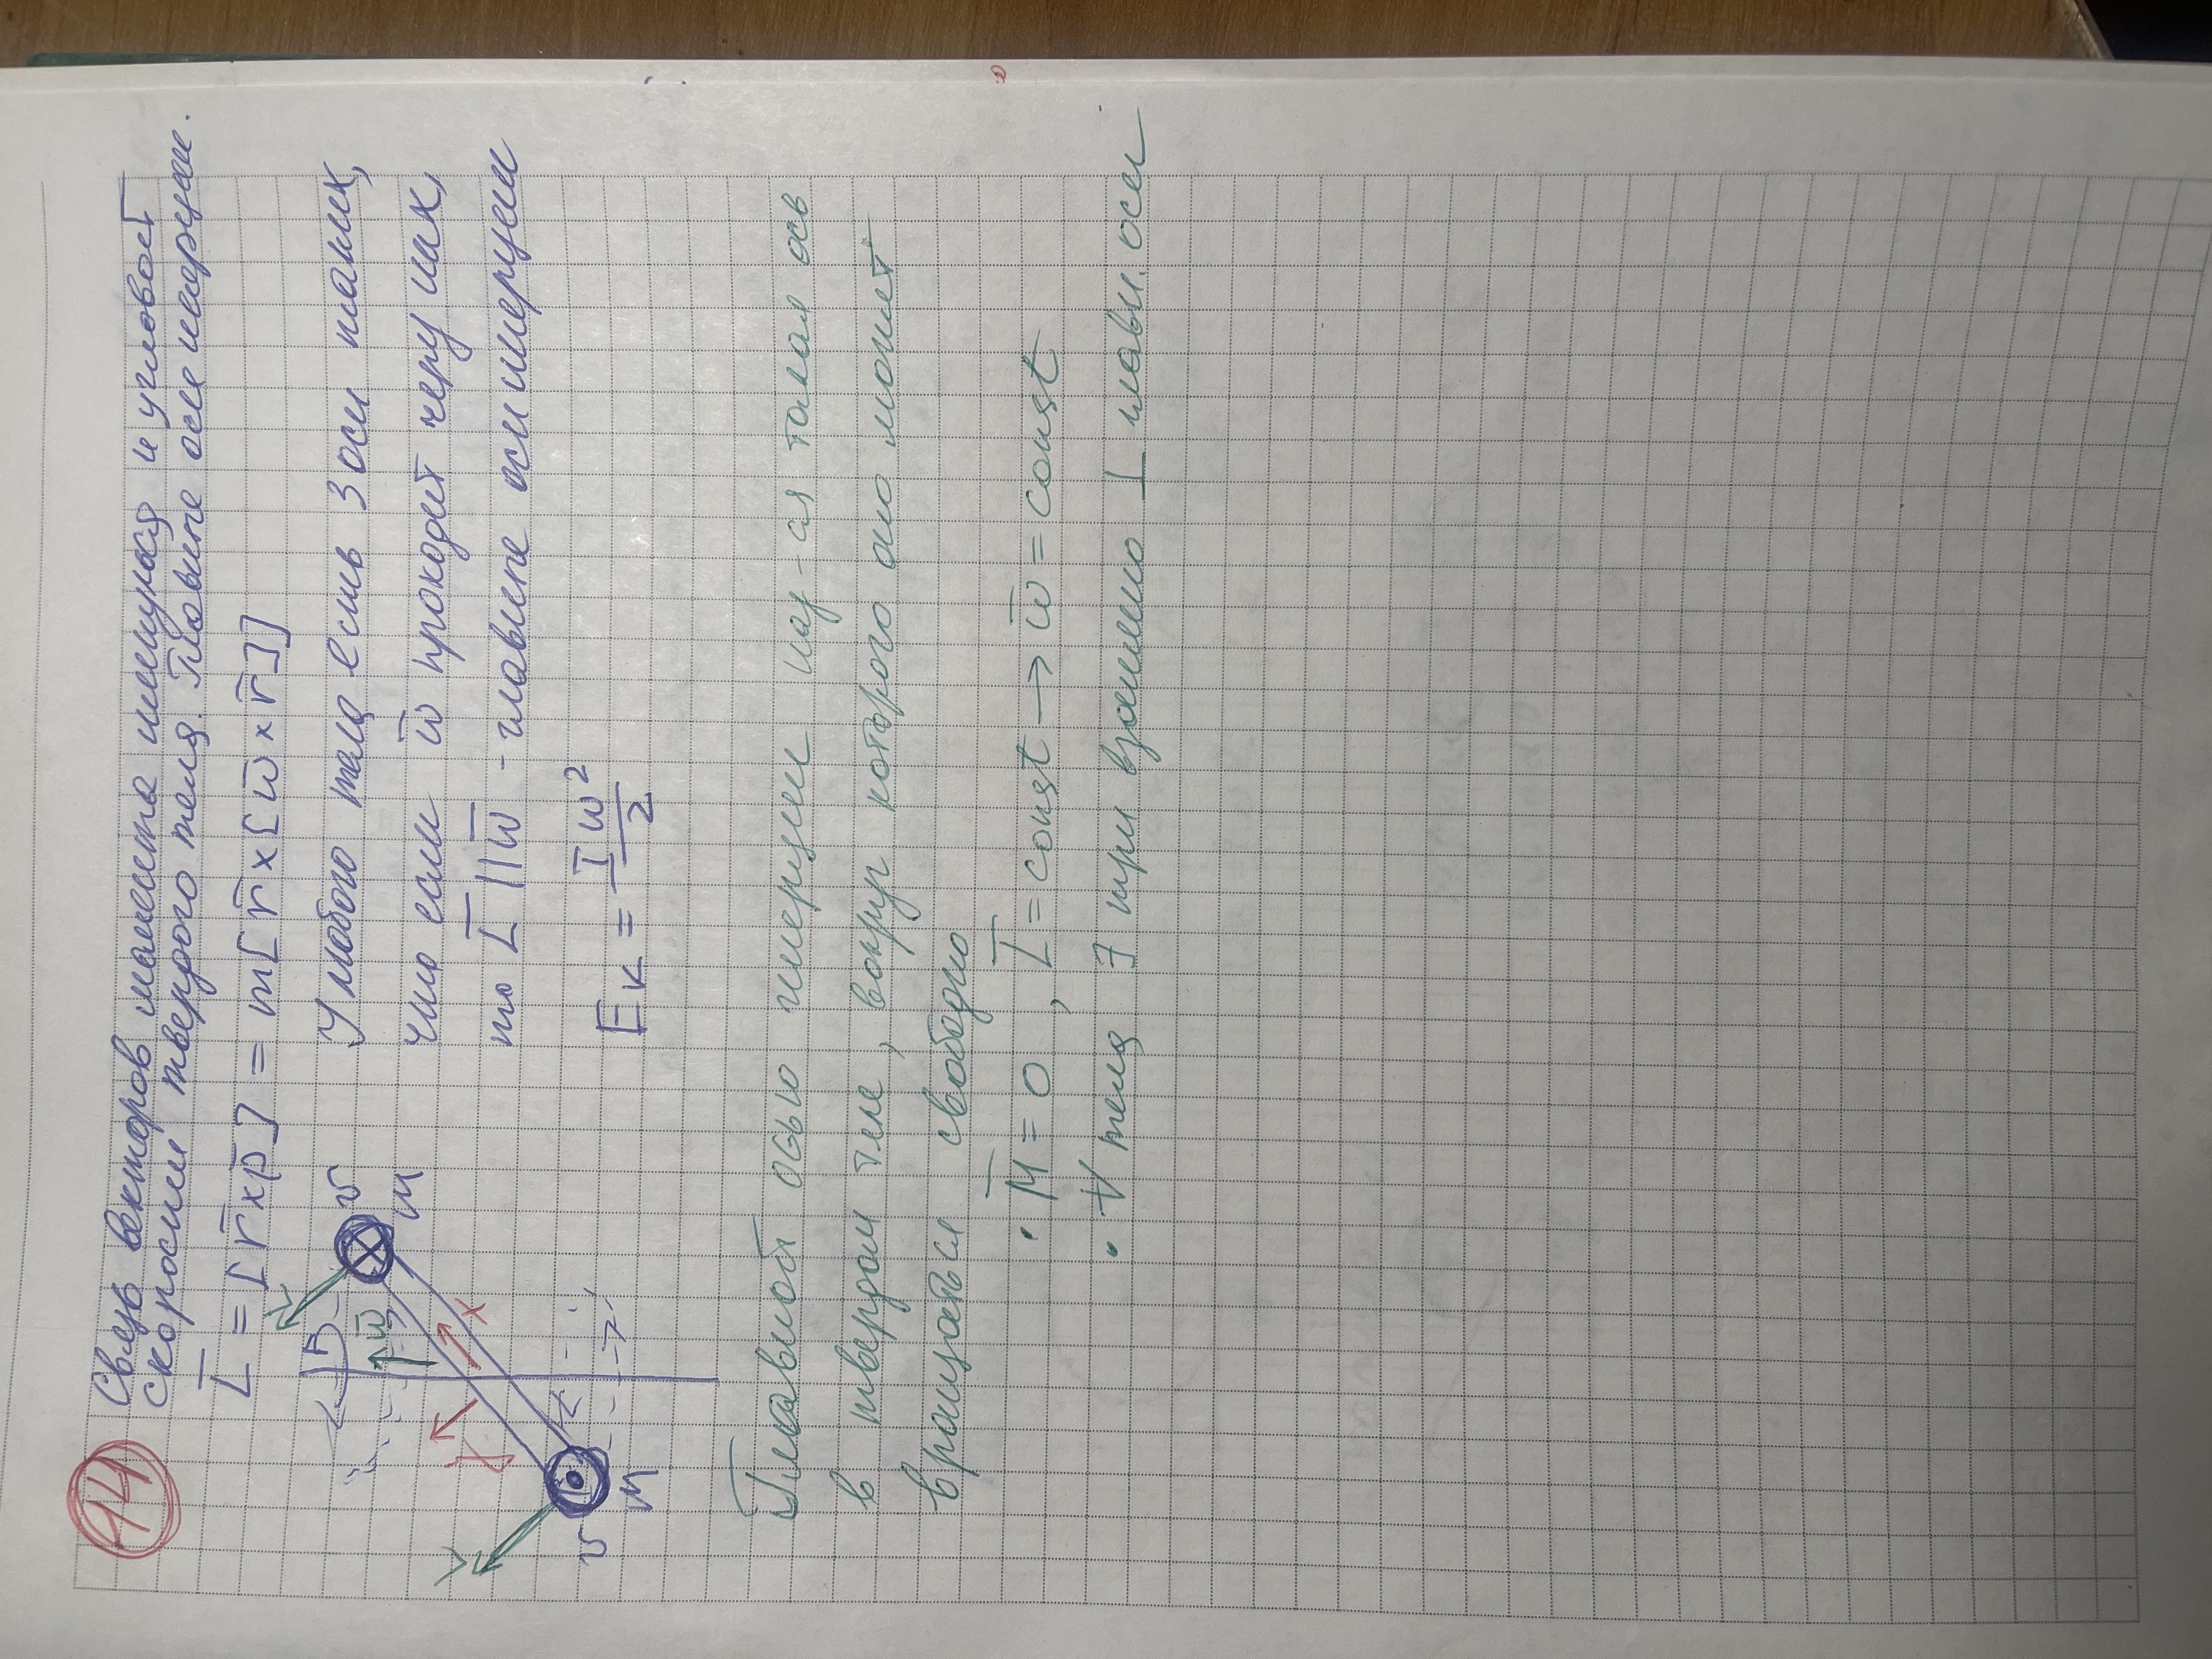 14
Связь векторов момента импульса и угловой
скорости твердого тела. Главные оси инерции.
L̅ = [r̅×p̅] = m[r̅×[ω̅×r̅]]
L
v
ω̅
m
L
y
x
v
m
У любого тела есть 3 оси таких,
что если ω̅ проходит через них,
то L̅ || ω̅ - главные оси инерции
Eк = Iω²/2
Главной осью инерции наз-ся такая ось
в твердом теле, вокруг которого оно может
вращаться свободно
• M̅ = 0, L̅ = const → ω̅ = const
• ∀ тела ∃ три взаимно ⊥ главн. оси